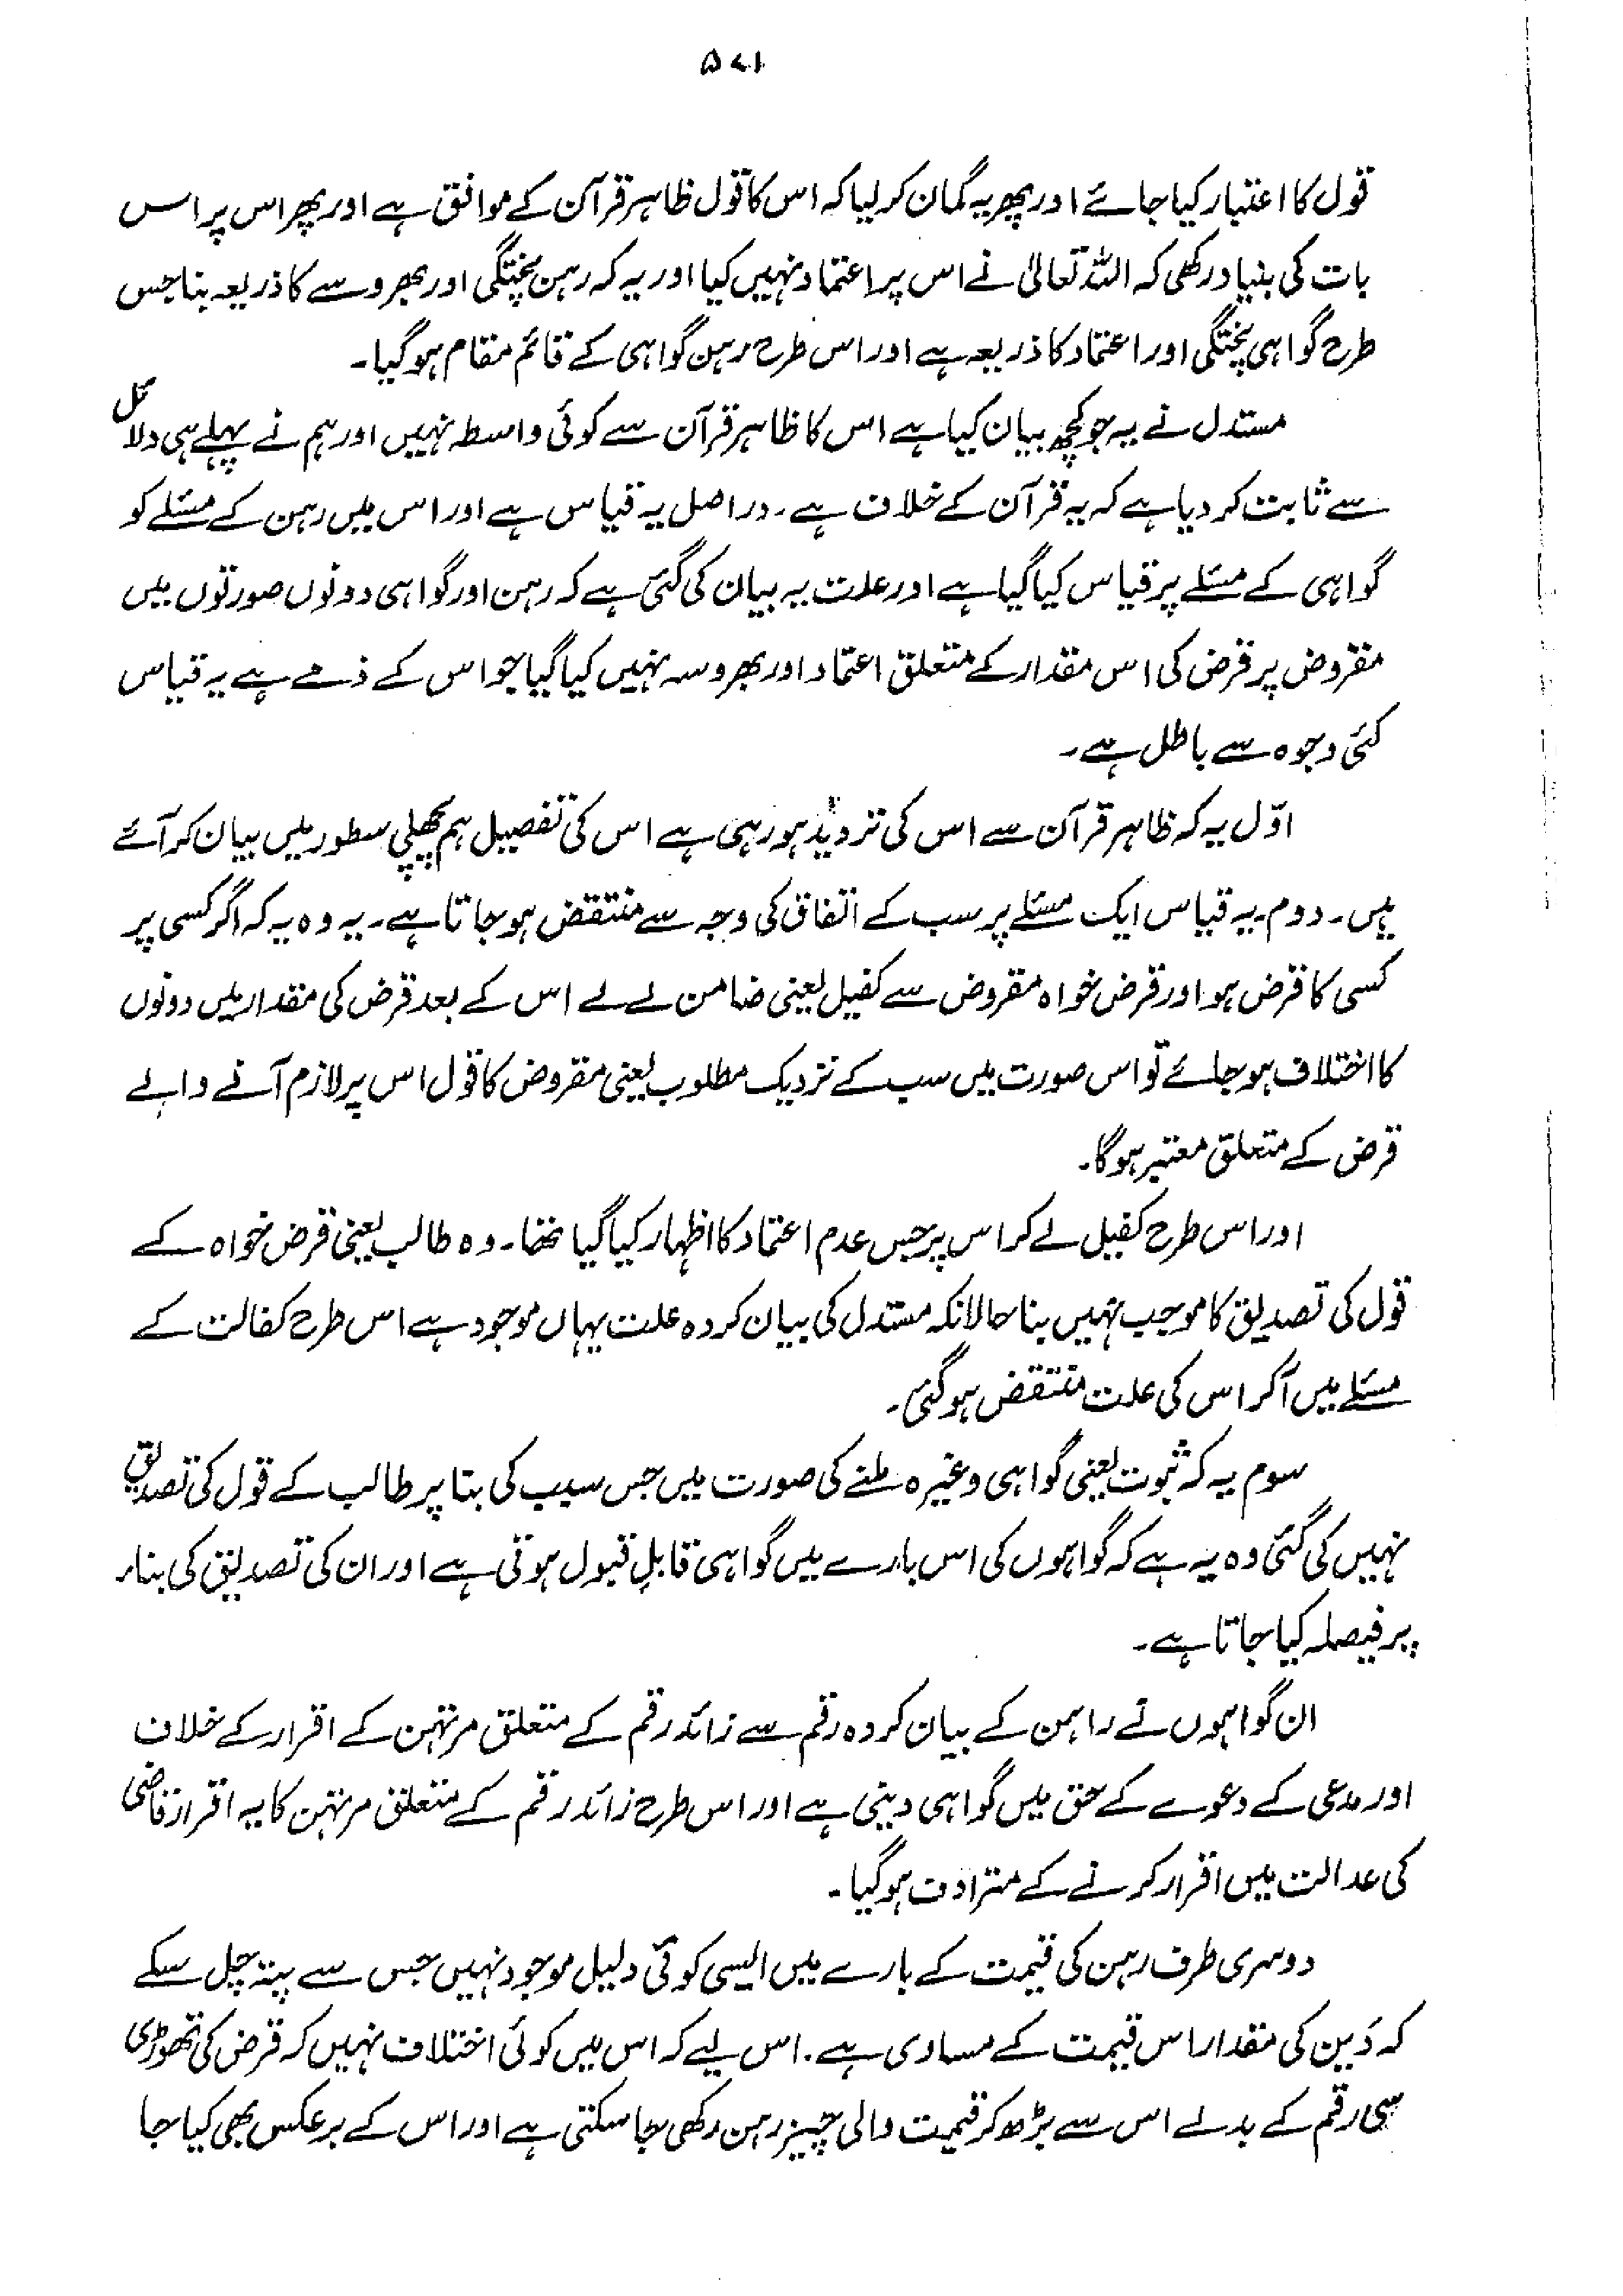 ۵۷۱
قول کا اعتبار کیا جائے اور پھر یہ گمان کر لیا کہ اس کا قول ظاہر قرآن کے موافق ہے اور پھر اس پر اس
بات کی بنیاد رکھی کہ اللہ تعالیٰ نے اس پر اعتماد نہیں کیا اور یہ کہ رہن پختگی اور بھروسے کا ذریعہ بنا جس
طرح گواہی پختگی اور اعتماد کا ذریعہ ہے اور اس طرح رہن گواہی کے قائم مقام ہو گیا۔
مستدل نے یہ جو کچھ بیان کیا ہے اس کا ظاہر قرآن سے کوئی واسطہ نہیں اور ہم نے پہلے ہی دلائل
سے ثابت کر دیا ہے کہ یہ قرآن کے خلاف ہے۔ دراصل یہ قیاس ہے اور اس میں رہن کے مسئلے کو
گواہی کے مسئلے پر قیاس کیا گیا ہے اور علت یہ بیان کی گئی ہے کہ رہن اور گواہی دونوں صورتوں میں
مقروض پر قرض کی اس مقدار کے متعلق اعتماد اور بھروسہ نہیں کیا گیا جو اس کے ذمے ہے یہ قیاس
کئی وجوہ سے باطل ہے۔
اوّل یہ کہ ظاہر قرآن سے اس کی تردید ہو رہی ہے اس کی تفصیل ہم پچھلی سطور میں بیان کر آئے
ہیں۔ دوم۔ یہ قیاس ایک مسئلے پر سب کے اتفاق کی وجہ سے منتقض ہو جاتا ہے۔ یہ وہ یہ کہ اگر کسی پر
کسی کا قرض ہو اور قرض خواہ مقروض سے کفیل یعنی ضامن لے لے اس کے بعد قرض کی مقدار میں دونوں
کا اختلاف ہو جائے تو اس صورت میں سب کے نزدیک مطلوب یعنی مقروض کا قول اس پر لازم آنے والے
قرض کے متعلق معتبر ہوگا۔
اور اس طرح کفیل لے کر اس پر جس عدم اعتماد کا اظہار کیا گیا تھا۔ وہ طالب یعنی قرض خواہ کے
قول کی تصدیق کا موجب نہیں بنا حالانکہ مستدل کی بیان کردہ علت یہاں موجود ہے اس طرح کفالت کے
مسئلے میں آکر اس کی علت منتقض ہو گئی۔
سوم یہ کہ ثبوت یعنی گواہی وغیرہ ملنے کی صورت میں جس سبب کی بنا پر طالب کے قول کی تصدیق
نہیں کی گئی وہ یہ ہے کہ گواہوں کی اس بارے میں گواہی قابل قبول ہوتی ہے اور ان کی تصدیق کی بناء
پر فیصلہ کیا جاتا ہے۔
ان گواہوں نے راہن کے بیان کردہ رقم سے زائد رقم کے متعلق مرتہن کے اقرار کے خلاف
اور مدعی کے دعوے کے حق میں گواہی دینی ہے اور اس طرح زائد رقم کے متعلق مرتہن کا یہ اقرار قاضی
کی عدالت میں اقرار کرنے کے مترادف ہو گیا۔
دوسری طرف رہن کی قیمت کے بارے میں ایسی کوئی دلیل موجود نہیں جس سے پتہ چل سکے
کہ دَین کی مقدار اس قیمت کے مساوی ہے۔ اس لیے کہ اس میں کوئی اختلاف نہیں کہ قرض کی تھوڑی
سی رقم کے بدلے اس سے بڑھ کر قیمت والی چیز رہن رکھی جا سکتی ہے اور اس کے برعکس بھی کیا جا